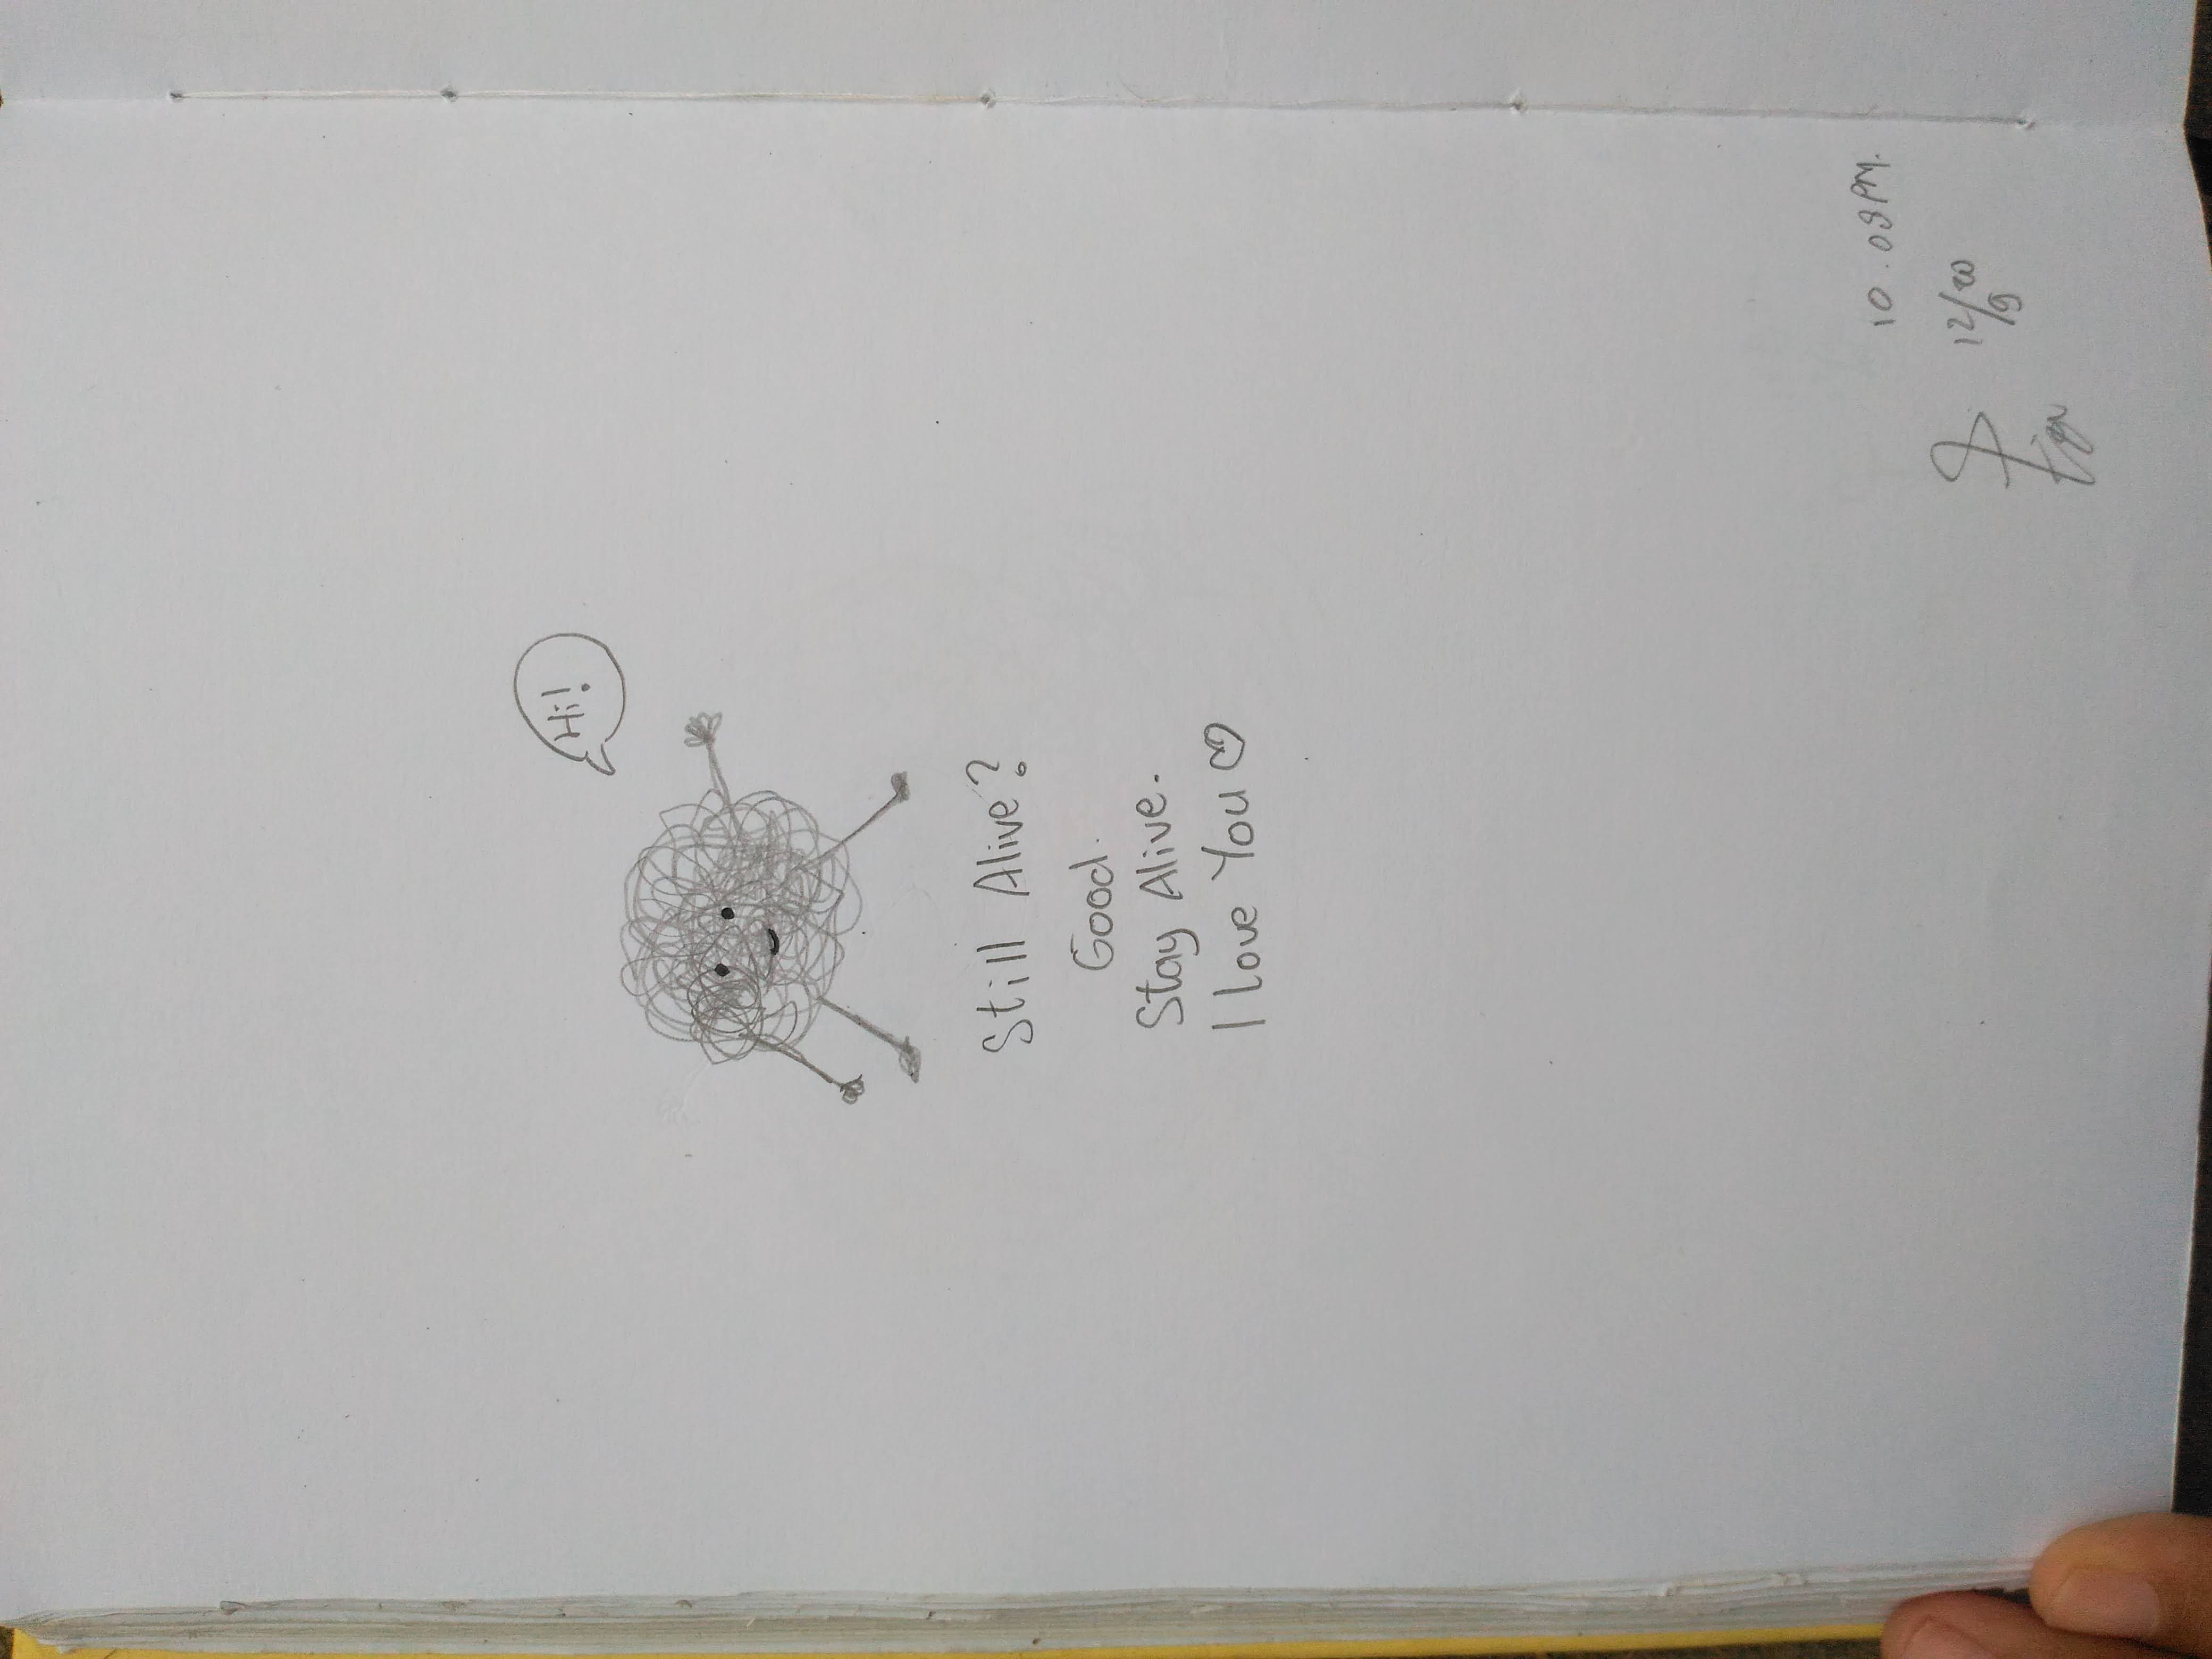 Hi!
Still Alive?
Good.
Stay Alive.
I love You ♡
10.08PM.
12/20
/9